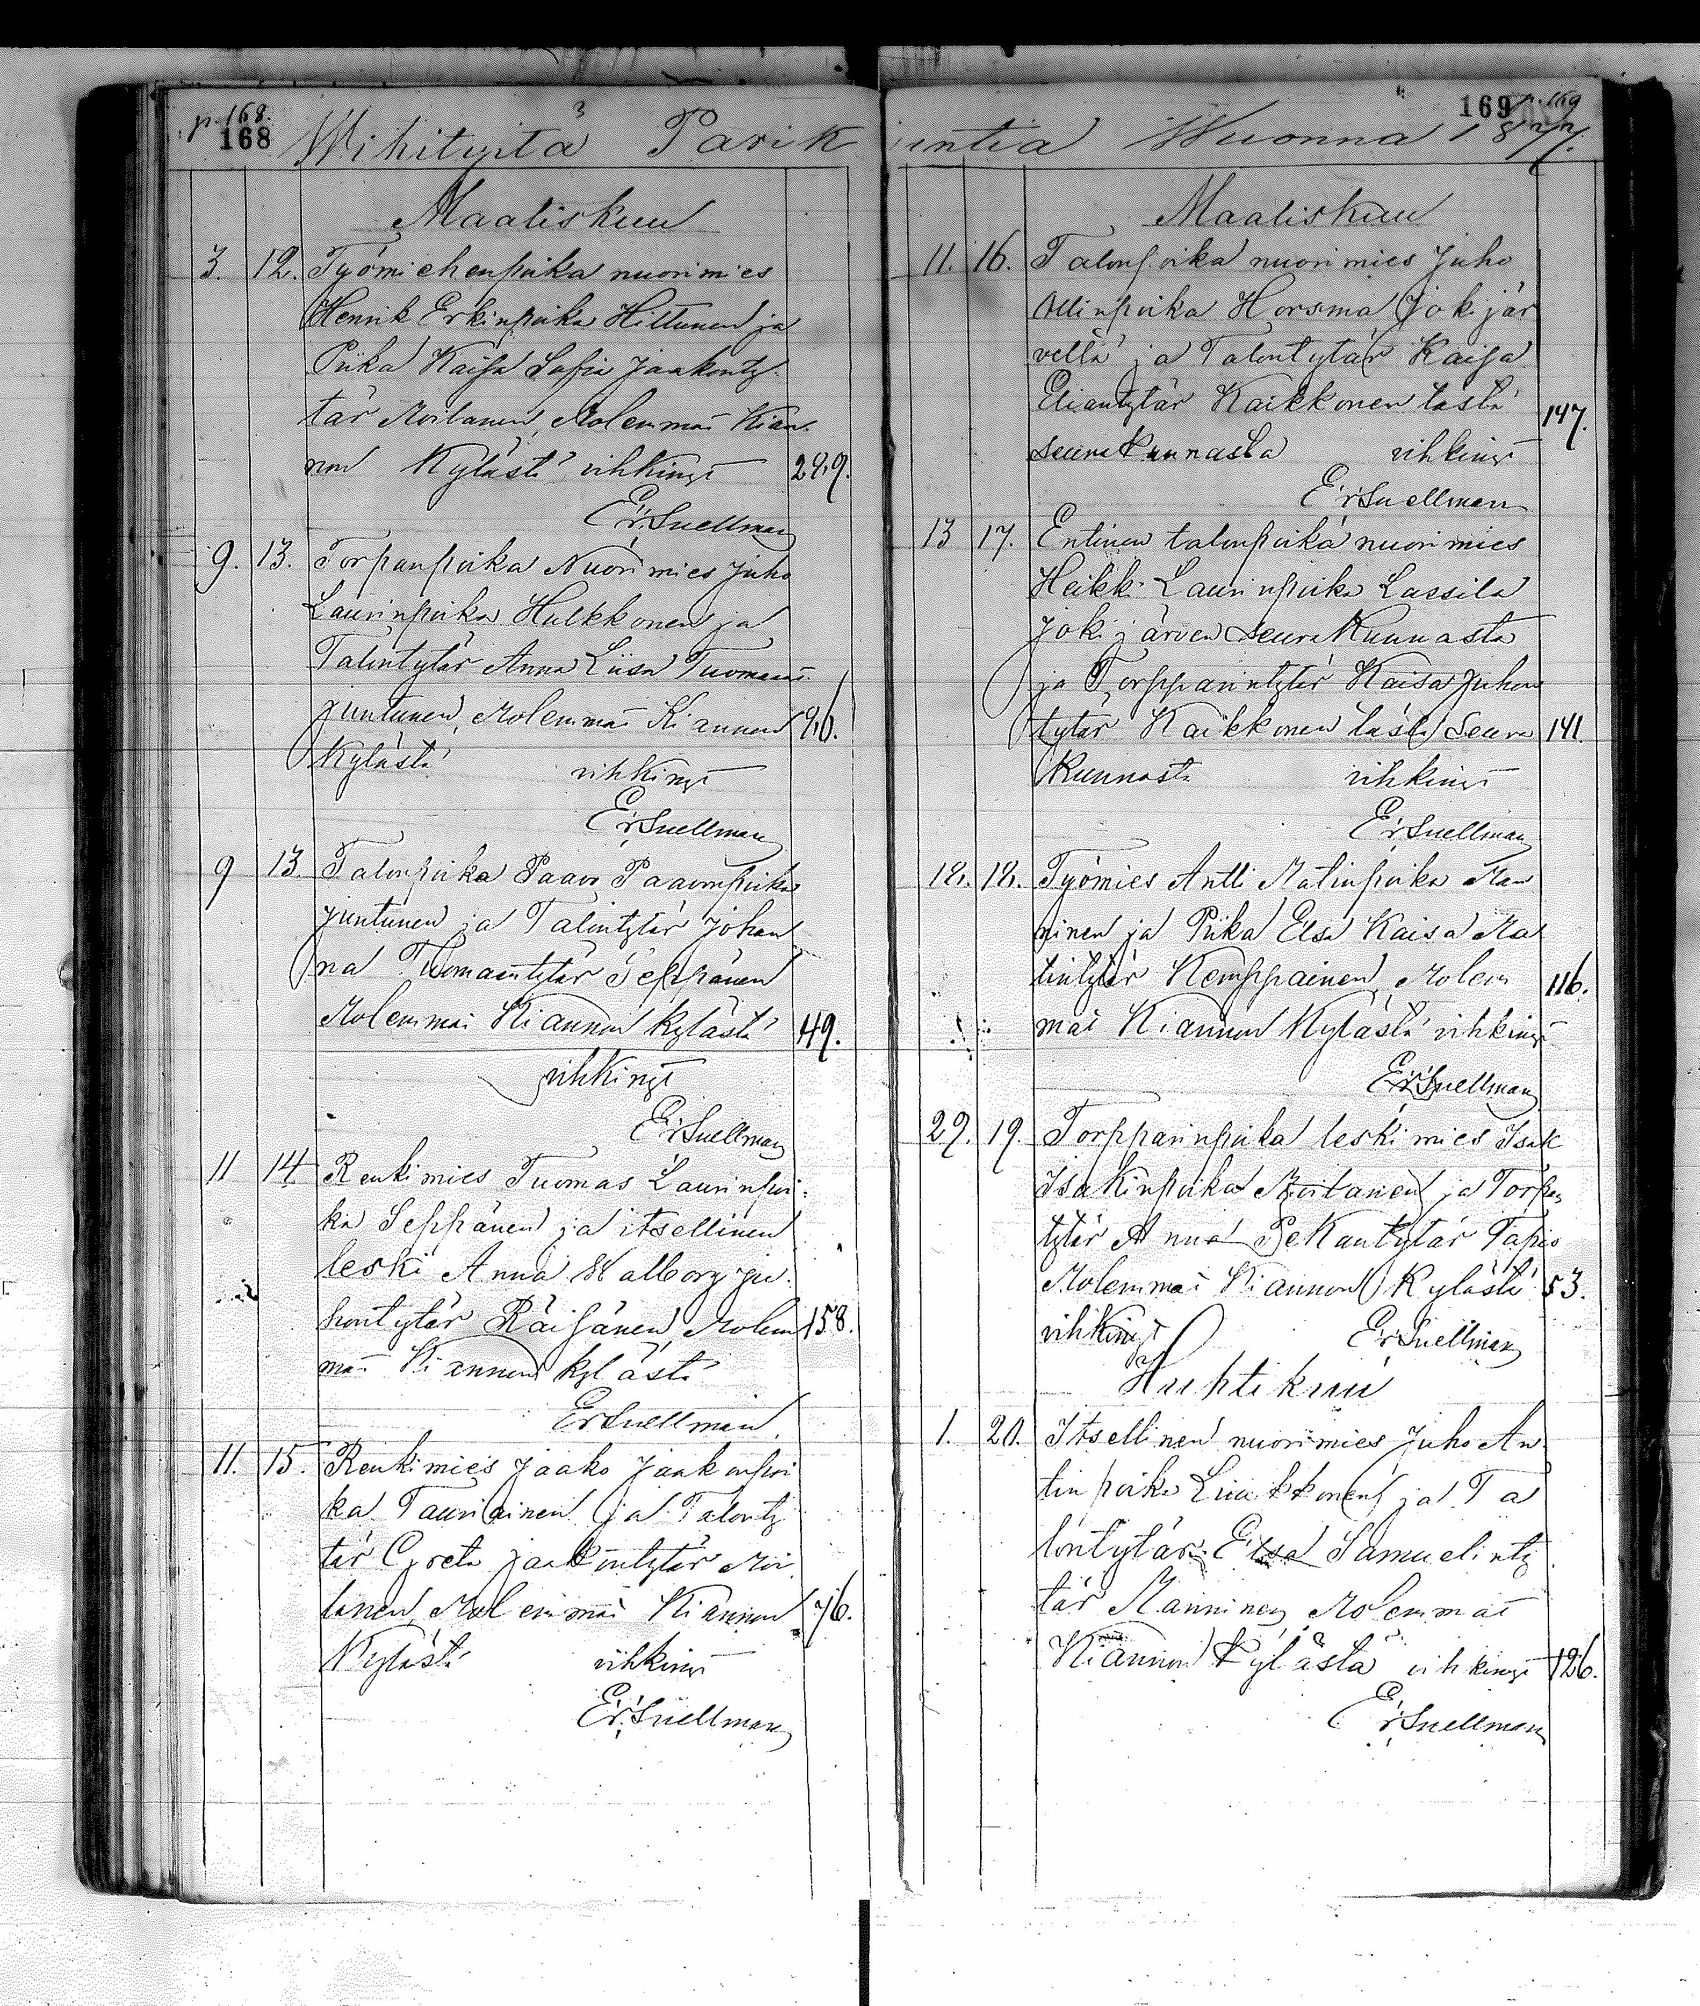 p. 168.
168
Wihityitä Parik
Maaliskuu
3. 12. Työmiehenpoika nuorimies
Henrik Erkinpoika Hiltunen ja
Piika Kaisa Sofia Jaakonty
tär Moilanen, Molemmat Kian
non Kylästä vihkinyt 289.
Er. Snellman
9. 13. Torpanpoika Nuorimies Juho
Laurinpoika Hulkkonen ja
Talontytär Anna Liisa Tuomaant.
Juntunen, Molemmat Kiannon 96.
Kylästä vihkinyt
Er. Snellman
9 13 Talonpoika Paavo Paavonpoika
Juntunen ja Talontytär Johan
na Tuomaantytär Seppänen
Molemmat Kiannon kylästä 49.
vihkinyt
Er. Snellman
11 14 Renkimies Tuomas Laurinpoi
ka Seppänen ja itsellinen
leski Anna Walborg Ju
hontytär Räisänen, Molem 158.
mat Kiannon kylästä
Er Snellman.
11. 15. Renkimies Jaako Jaakonpoi
ka Tauriainen ja Talonty
tär Greta Jaakontytär Moi
lanen, Molemmat Kiannon 76.
Kylästä vihkinyt
Er. Snellman
169 p. 169
intia Wuonna 1877.
Maaliskuu
11. 16. Talonpoika nuorimies Juho
Ollinpoika Horsma Jokijär
veltä ja Talontytär Kaisa
Eliantytär Kaikkonen tästä 147.
seurakunnasta vihkinyt
Er Snellman
13 17. Entinen talonpoika nuorimies
Heikki Laurinpoika Lassila
Jokijärven seurakunnasta
ja Torpparintytär Kaisa Juhon
tytär Kaikkonen tästä Seura 141
kunnasta vihkinyt
Er. Snellman
18. 18. Työmies Antti Matinpoika Man
ninen ja Piika Elsa Kaisa Ma
tintytär Kemppainen, Molem 116.
mat Kiannon Kylästä vihkinyt
Er. Snellman
29. 19. Torpparinpoika leskimies Isak
Isakinpoika Moilanen ja Torpan
tytär Anna Pekantytär Tapio
Molemmat Kiannon Kylästä 53.
vihkinyt Er. Snellman
Huhtikuu
1. 20. Itsellinen nuorimies Juho An
tinpoika Liukkonen ja Ta
lontytär Elsa Samuelinty
tär Manninen, Molemmat
Kiannon Kylästä vihkinyt 126.
Er. Snellman